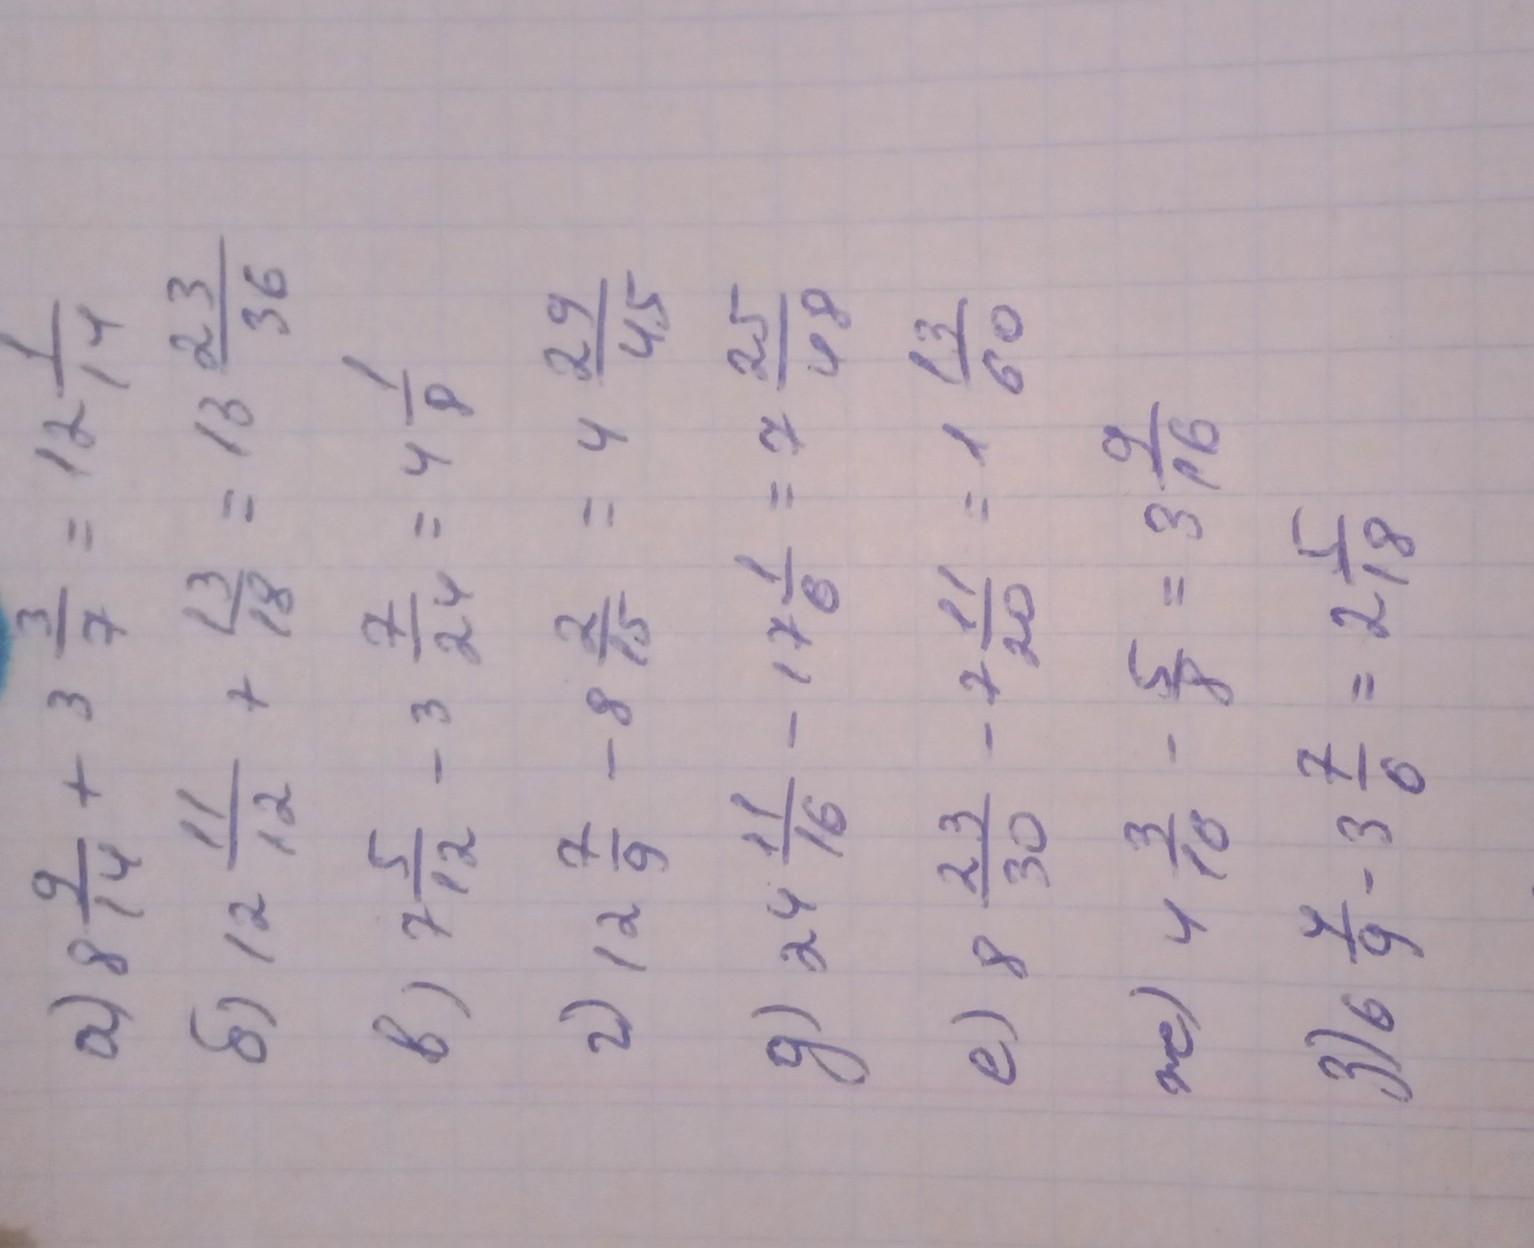 а) 8 9/14 + 3 3/7 = 12 1/14
б) 12 11/12 + 13/18 = 13 23/36
в) 7 5/12 - 3 7/24 = 4 1/8
г) 12 7/9 - 8 2/15 = 4 29/45
д) 24 11/16 - 17 1/6 = 7 25/48
е) 8 23/30 - 7 11/20 = 1 13/60
ж) 4 3/16 - 5/8 = 3 9/16
з) 6 4/9 - 3 7/6 = 2 5/18